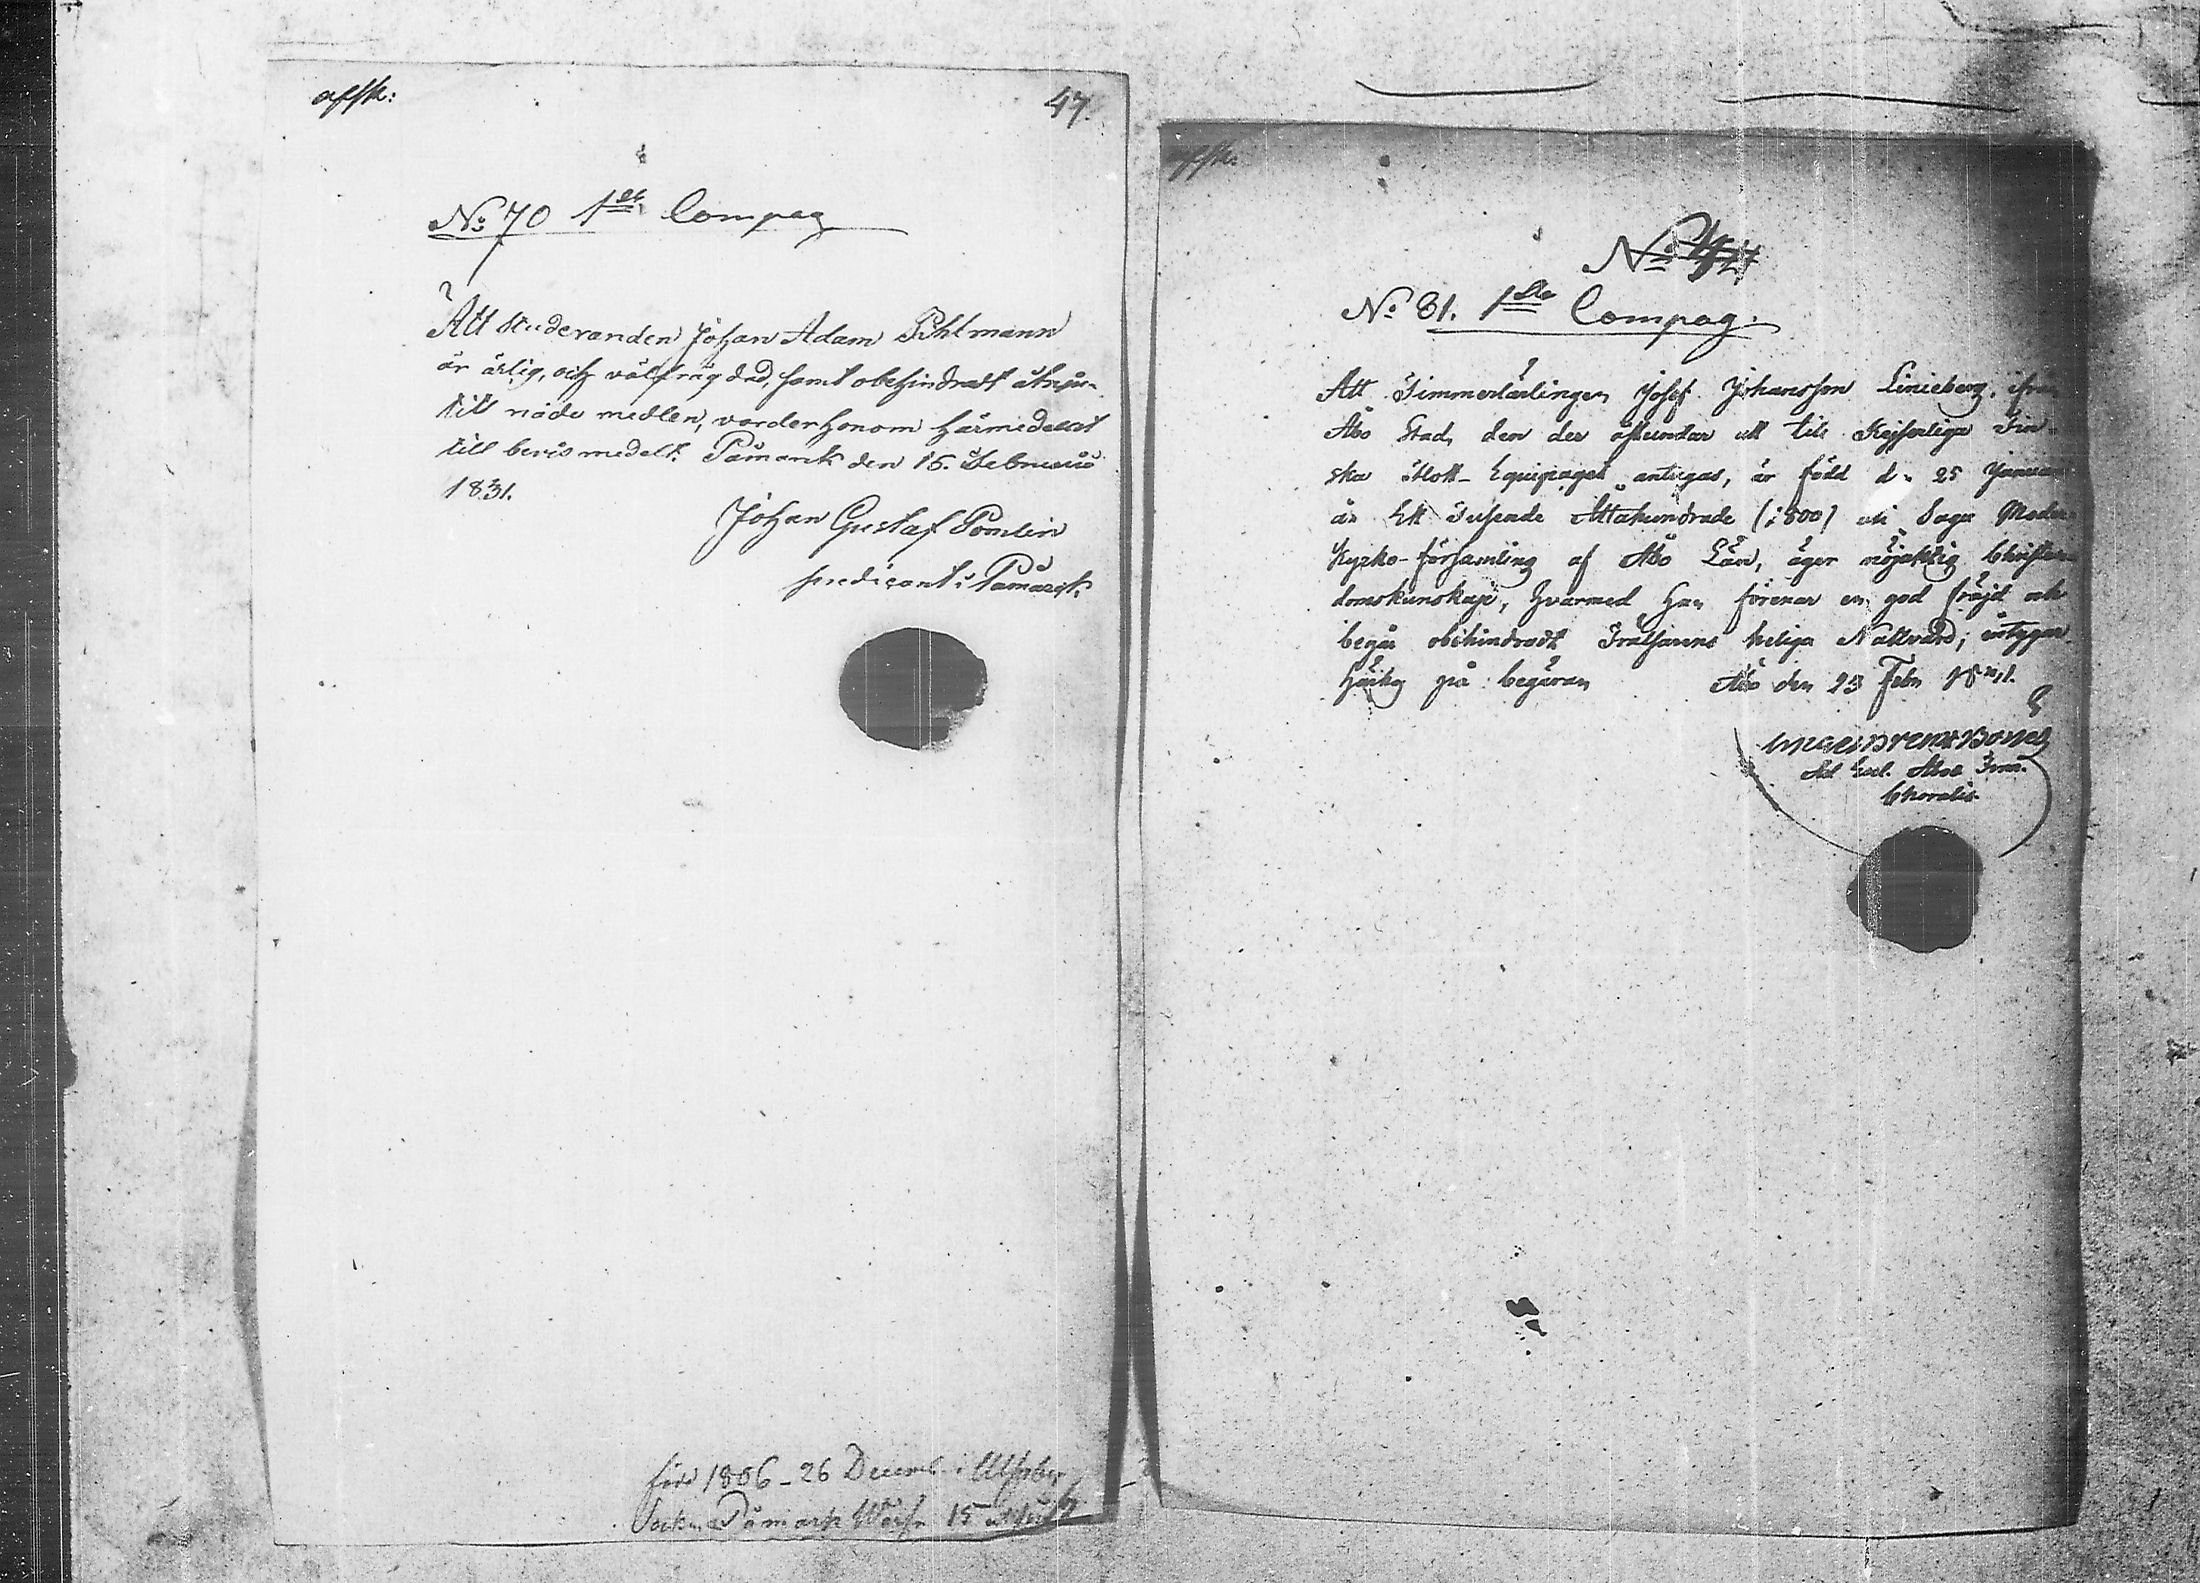 afsk:
47.
No: 70 1sta Compag
Att Studeranden Johan Adam Pihlmann
är ärlig, och välfrägdad, samt obehindradt åtnju-
tit nåde medlen, varder honom härmedelst
till bevis medelt. Påmark den 15. Februarii
1831.
Johan Gustaf Pomelin
predicant i Påmark.
född 1806 - 26 Decemb. i Ulfsby
Sockn Påmark
afsk:
No
No 81. 1sta Compag:
Att Timmerlärlingen Josef Johansson Linieberg, ifrån
Åbo Stad, den der åstundar att till Kejserliga Fin-
ska Flott-Equipaget antagas, är född d. 25 Januari
år Ett Tusende Åttahundrade (1800) uti Sagu Moder-
Kyrko-församling af Åbo Län, äger nöjaktig Christen-
domskunskap, hvarmed han förenar en god fräjd och
begår obehindradt Frälsarens heliga Nattvard; intygar
härhos på begäran Åbo den 23 Febr 1831.
Ad Eccl. Aboë Fenn.